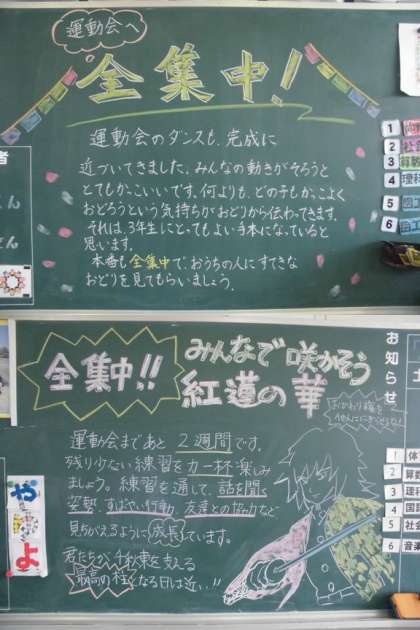 運動会へ
全集中!
運動会のダンスも、完成に
近づいてきました。みんなの動きがそろうと
とてもかっこいいです。何よりも、どの子もかっこよく
おどろうという気持ちがおどりから伝わってきます。
それは、3年生にとってもよい手本になっていると
思います。
本番も全集中で、おうちの人にすてきな
おどりを見てもらいましょう。
1
2 社会
3 算数
4 理科
5 図工
6 図工
全集中!!
みんなで咲かそう
紅蓮の華
お知らせ
運動会まであと2週間です。
残り少ない練習を力一杯楽しみ
ましょう。練習を通して、話を聞く
姿勢、すばやい行動、友達との協力など
見ちがえるように成長しています。
君たちが千秋東を支える
最高の柱になる日は近い!!
やさしさ
よ
1 体
2 算数
3 理科
4 国語
5 社会
6 音楽